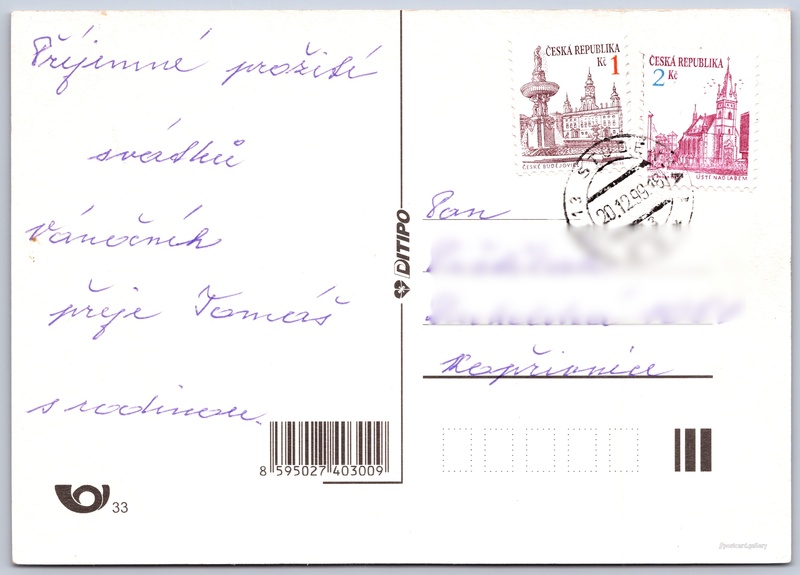 Příjemné prožití
svátků
vánočních
přeje Tomáš
s rodinou.
8 595027 403009
33
DITIPO
ČESKÁ REPUBLIKA
Kč 1
ČESKÉ BUDĚJOVICE
ČESKÁ REPUBLIKA
2 Kč
ÚSTÍ NAD LABEM
20.12.99.18
Pan
Kopřivnice